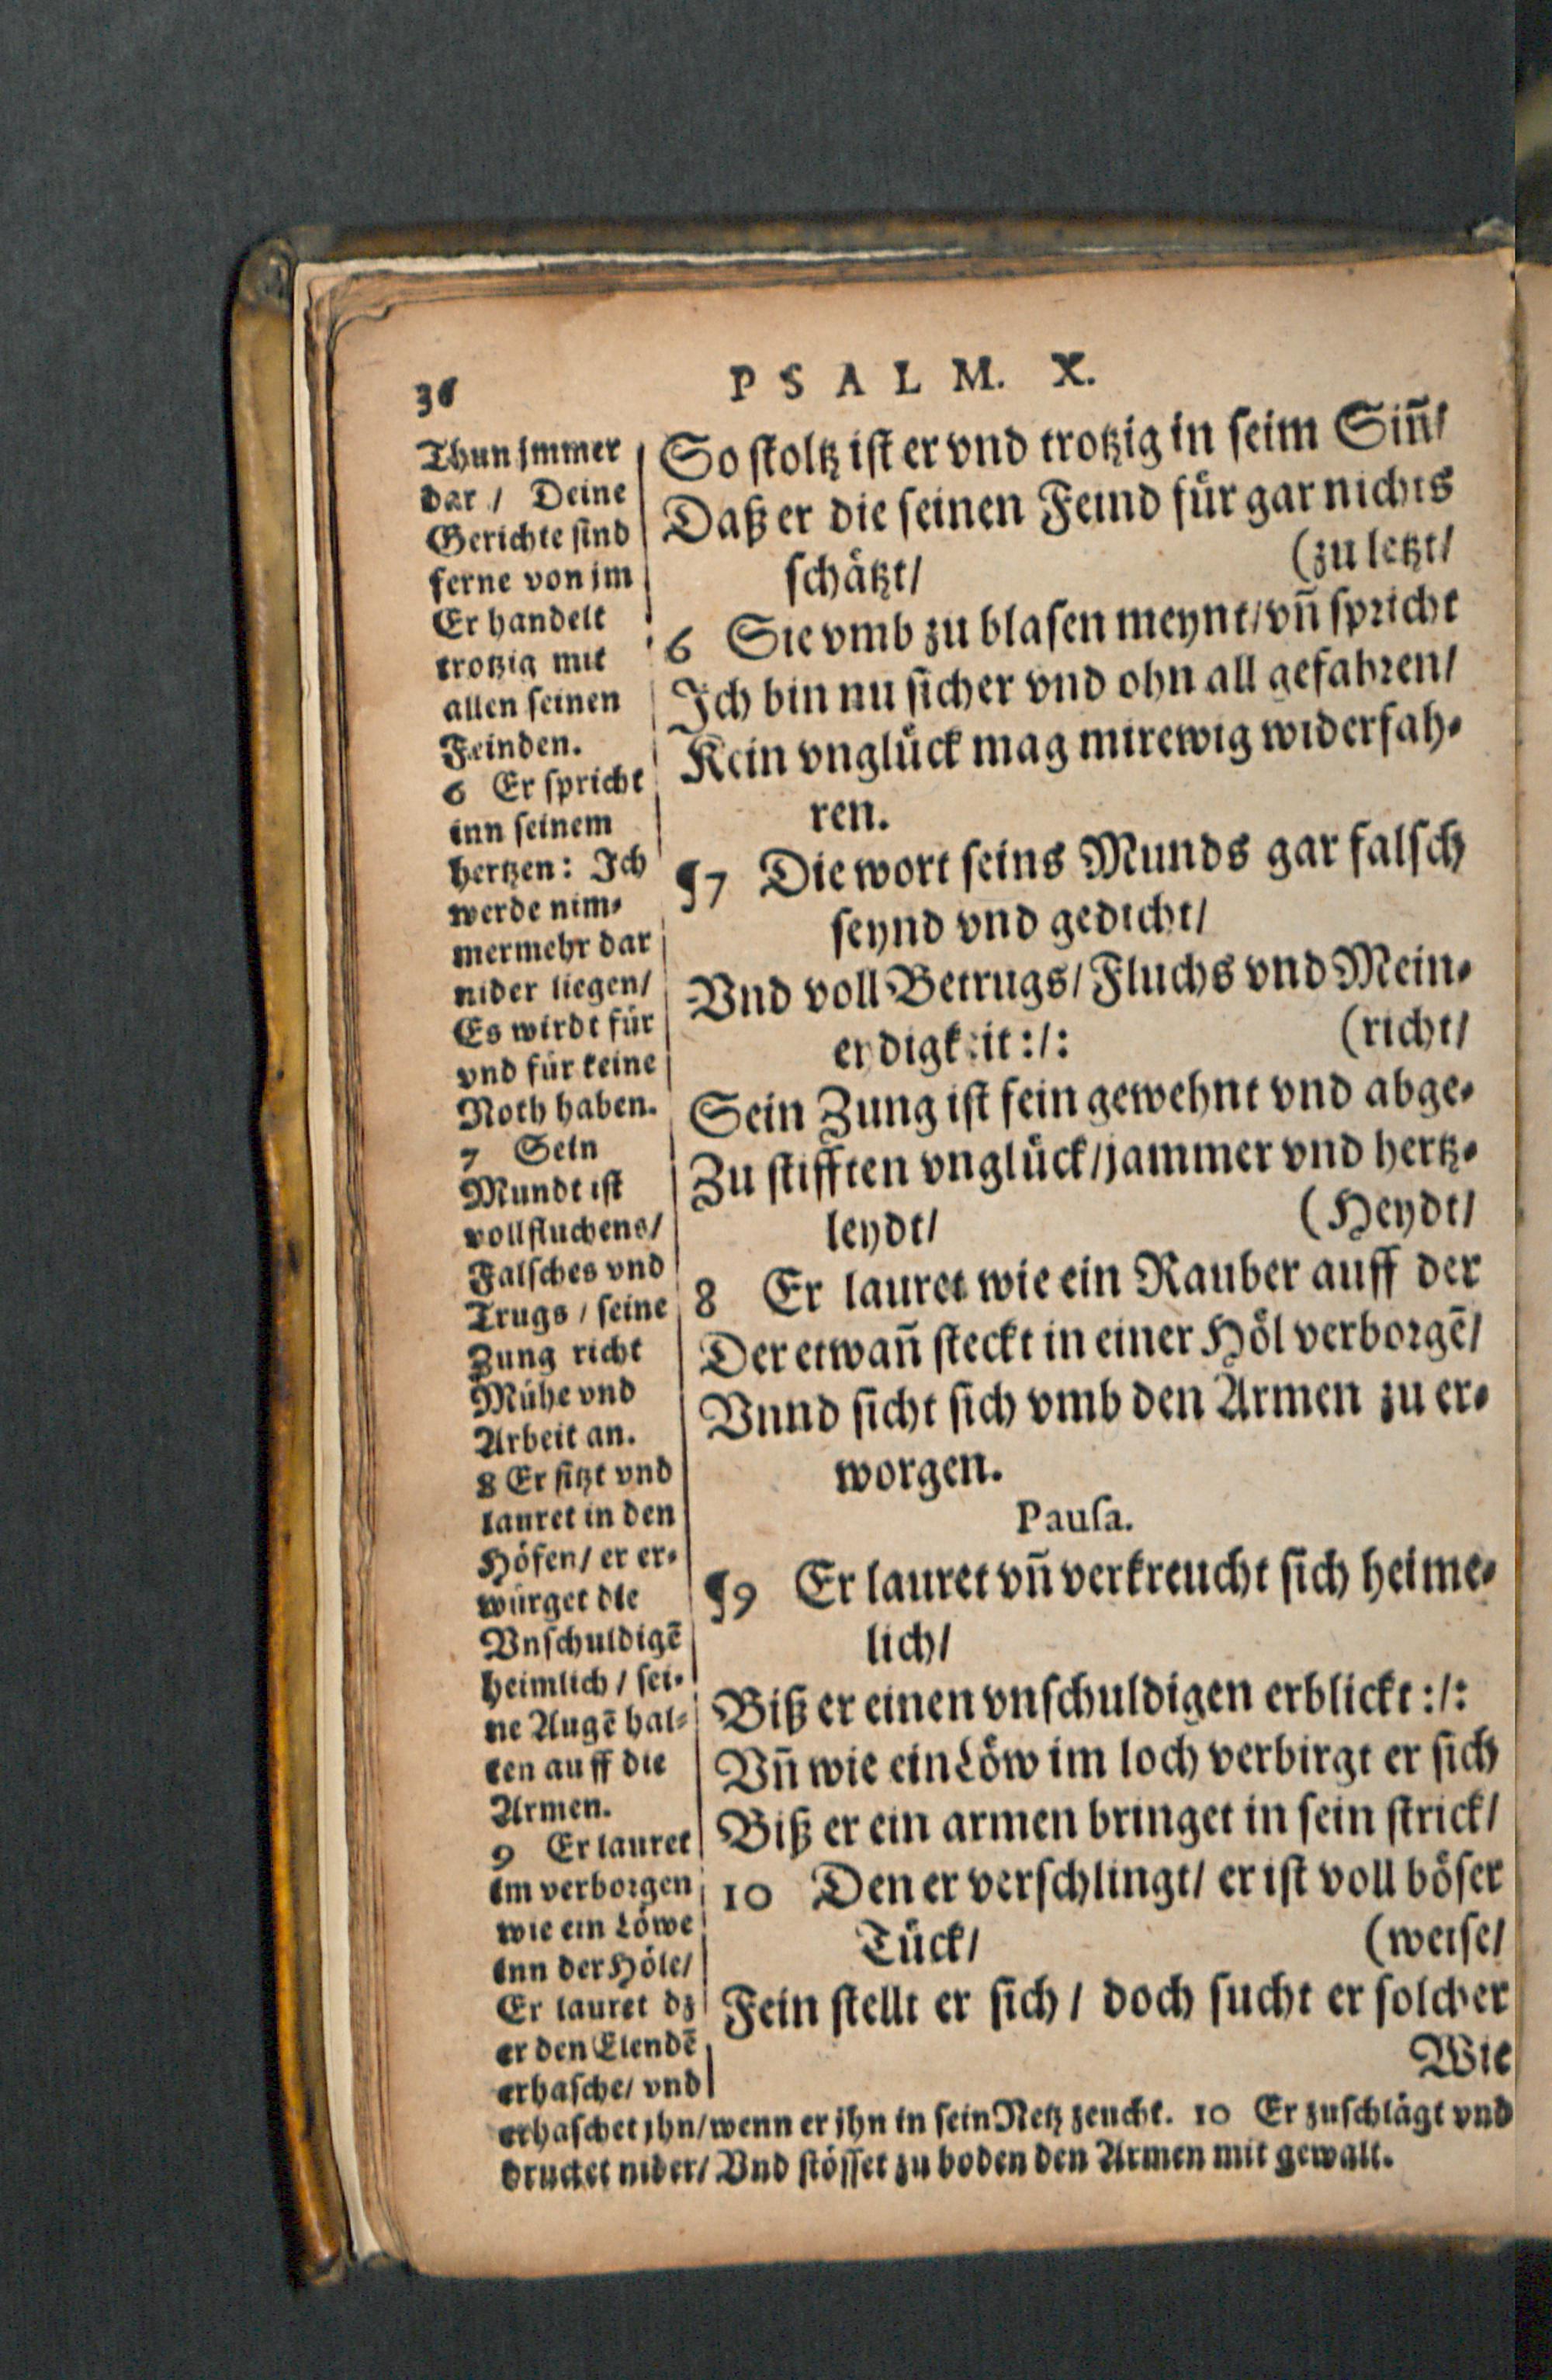 36
PSALM. X.
Thun jmmer
dar / Deine
Gerichte sind
ferne von jm
Er handelt
trotzig mit
allen seinen
Feinden.
6 Er spricht
inn seinem
hertzen: Ich
werde nim⸗
mermehr dar
nider liegen/
Es wirdt für
vnd für keine
Noth haben.
7 Sein
Mundt ist
voll fluchens/
Falsches vnd
Trugs / seine
Zung richt
Mühe vnd
Arbeit an.
8 Er sitzt vnd
lauret in den
Höfen/ er er⸗
würget die
Vnschuldigē
heimlich / sei⸗
ne Augē hal⸗
ten auff die
Armen.
9 Er lauret
im verborgen
wie ein Löwe
inn der Höle/
Er lauret dz
er den Elendē
erhasche/ vnd
erhaschet jhn/ wenn er jhn in sein Netz zeucht. 10 Er zuschlägt vnd
drucket nider/ Vnd stösset zu boden den Armen mit gewalt.
So stoltz ist er vnd trotzig in seim Siñ/
Daß er die seinen Feind für gar nichts
schätzt/ (zu letzt/
6 Sie vmb zu blasen meynt/ vñ spricht
Ich bin nu sicher vnd ohn all gefahren/
Kein vnglück mag mir ewig widerfah⸗
ren.
¶7 Die wort seins Munds gar falsch
seynd vnd gedicht/
Vnd voll Betrugs/ Fluchs vnd Mein⸗
eydigkeit :/: (richt/
Sein Zung ist fein gewehnt vnd abge⸗
Zu stifften vnglück/ jammer vnd hertz⸗
leydt/ (Heydt/
8 Er lauret wie ein Rauber auff der
Der etwañ steckt in einer Höl verborgē/
Vnnd sicht sich vmb den Armen zu er⸗
worgen.
Pausa.
¶9 Er lauret vñ verkreucht sich heime⸗
lich/
Biß er einen vnschuldigen erblickt :/:
Vñ wie ein Löw im loch verbirgt er sich
Biß er ein armen bringet in sein strick/
10 Den er verschlingt/ er ist voll böser
Tück/ (weise/
Fein stellt er sich / doch sucht er solcher
Wie